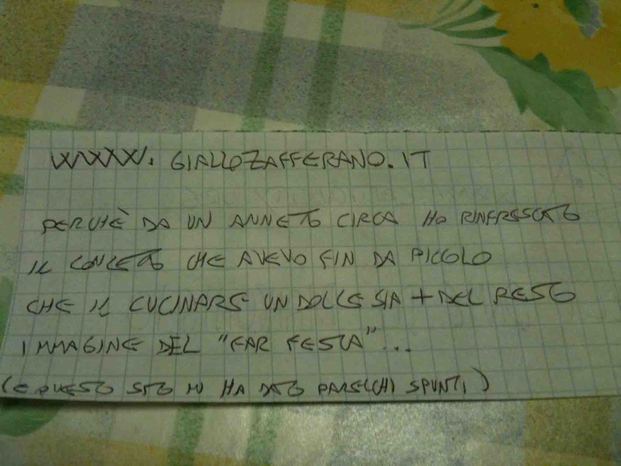 WWW. GIALLOZAFFERANO.IT
PERCHÈ DA UN ANNETTO CIRCA HO RINFRESCATO
IL CONCETTO CHE AVEVO FIN DA PICCOLO
CHE IL CUCINARE UN DOLCE SIA + DEL RESTO
IMMAGINE DEL "FAR FESTA"...
(E QUESTO SITO MI HA DATO PARECCHI SPUNTI)